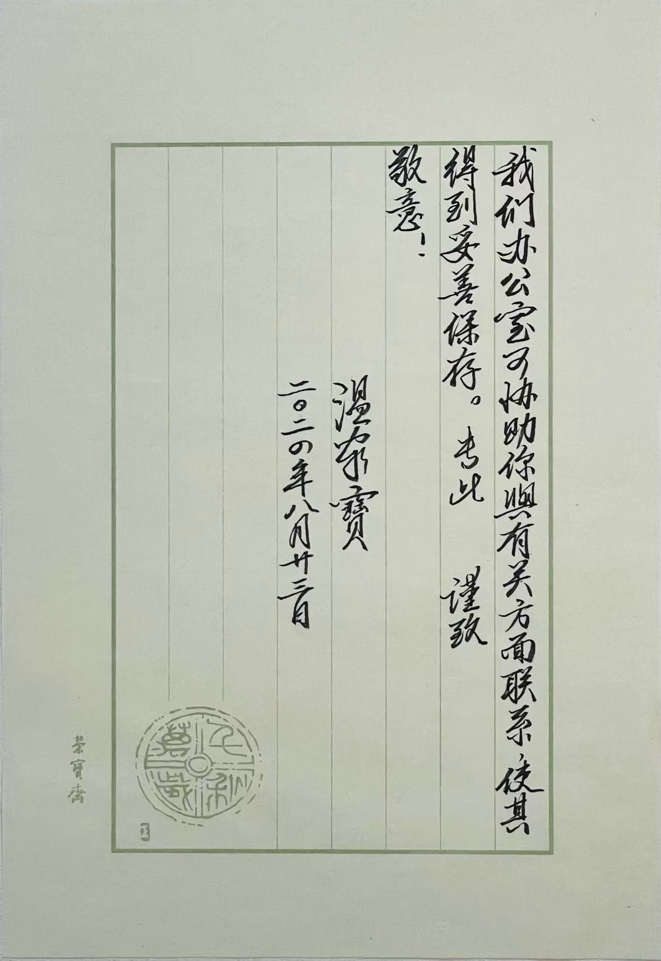 我们办公室可协助你與有关方面联系，使其
得到妥善保存。专此 谨致
敬意！
温家寶
二〇二四年八月廿三日
千秋萬歲
荣寶斋